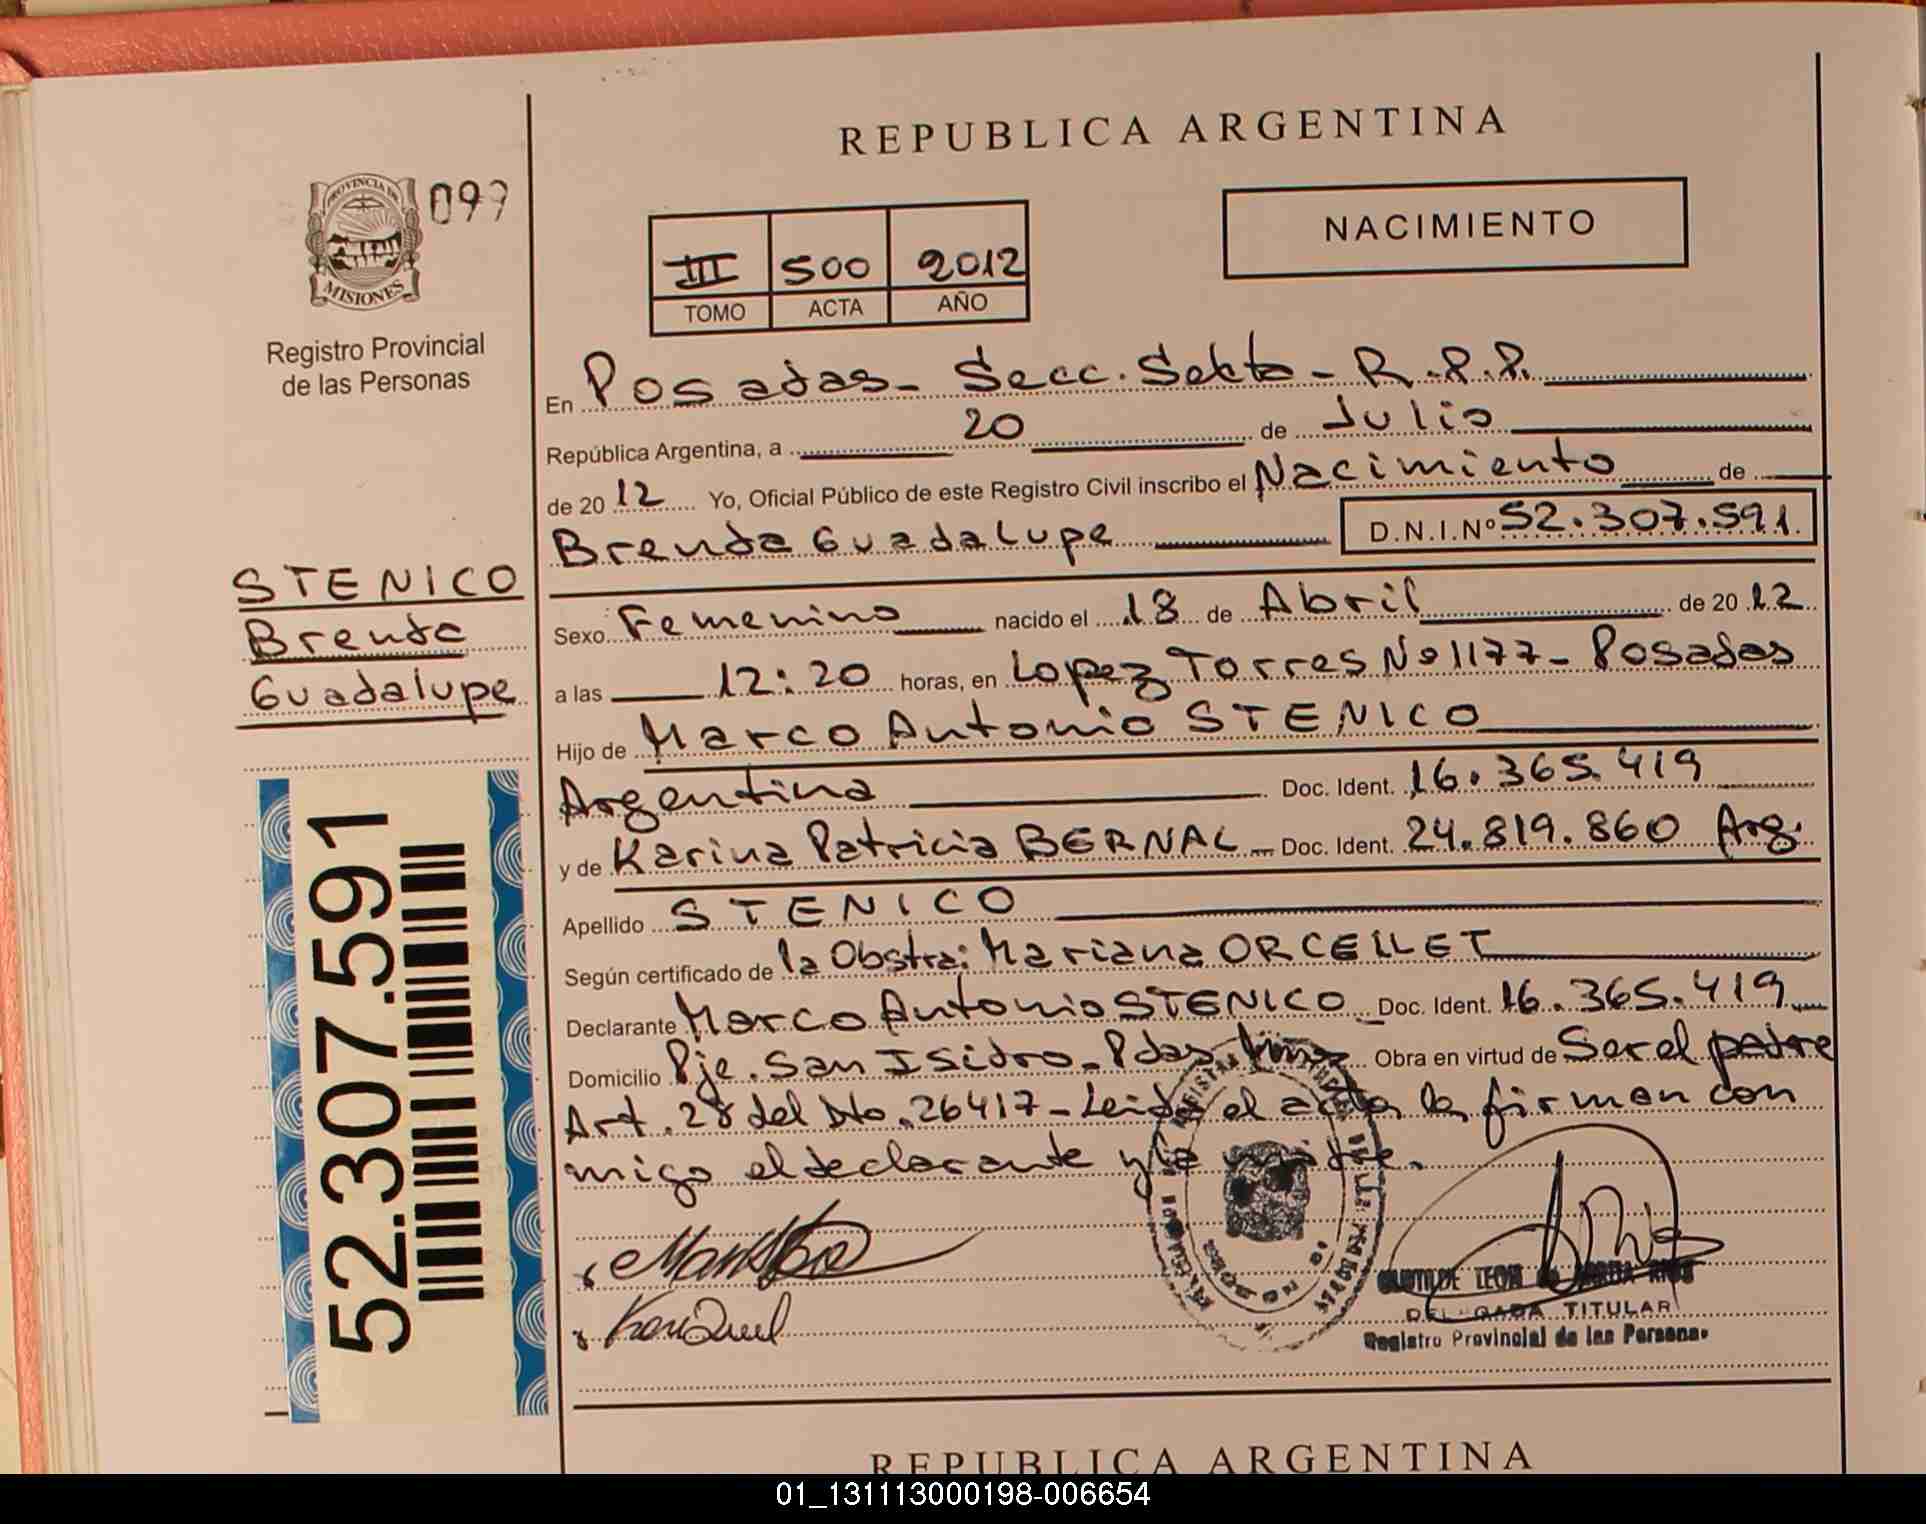 REPUBLICA ARGENTINA
PROVINCIA DE
MISIONES
099
Registro Provincial
de las Personas
III 500 2012
TOMO ACTA AÑO
NACIMIENTO
En Posadas - Secc. Sexta - R.P.P.
República Argentina, a 20 de Julio
de 2012 Yo, Oficial Público de este Registro Civil inscribo el Nacimiento de
Brenda Guadalupe D.N.I.Nº 52.307.591.
STENICO
Brenda
Guadalupe
Sexo Femenino nacido el 18 de Abril de 2012
a las 12:20 horas, en Lopez Torres Nº 1177 - Posadas
Hijo de Marco Antonio STENICO
Argentina Doc. Ident. 16.365.419
y de Karina Patricia BERNAL - Doc. Ident. 24.819.860 Arg.
Apellido STENICO
Según certificado de la Obstra: Mariana ORCELLET
Declarante Marco Antonio STENICO - Doc. Ident. 16.365.419
Domicilio Pje. San Isidro - Pdas. Obra en virtud de Ser el padre
Art. 28 del Dto. 26417 - Leida el acta la firman con
migo el declarante y la madre.
52.307.591
DELEGADA TITULAR
Registro Provincial de las Personas
REPUBLICA ARGENTINA
01_131113000198-006654